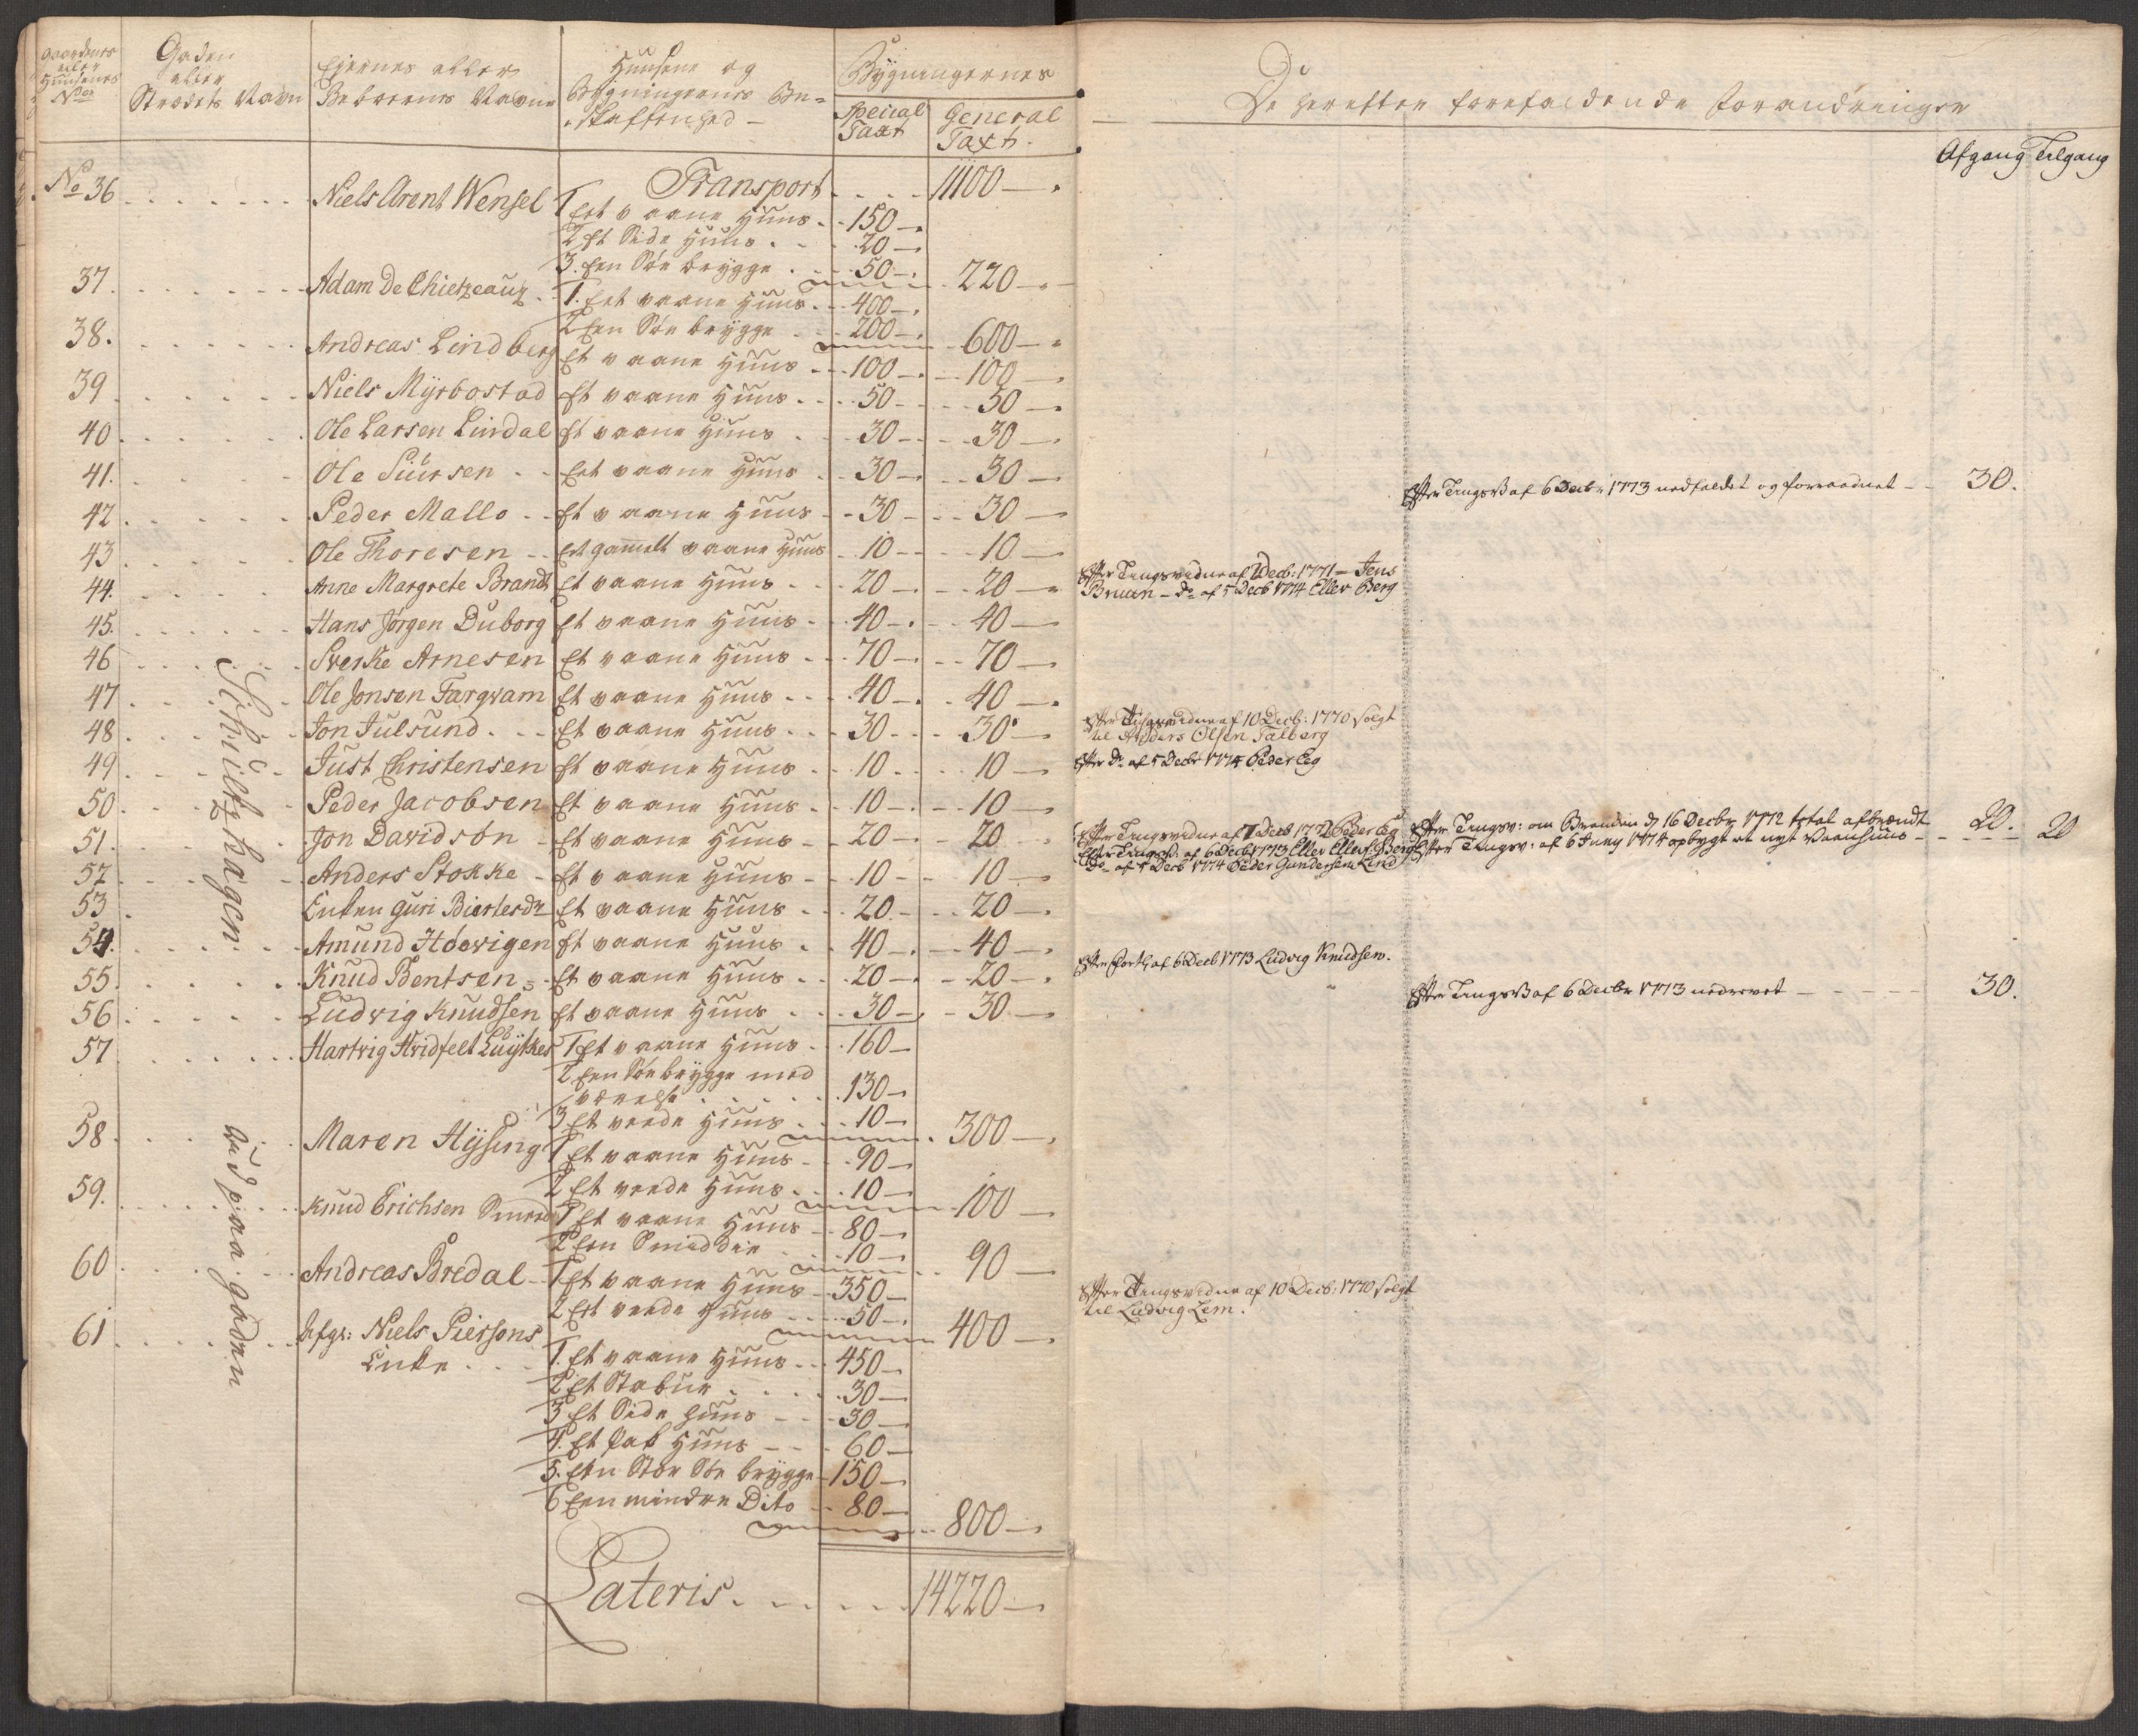 Gaardenes eller Huusenes Nrs
Gaden eller Strædets Navn
Eiernes eller Beboerens Navne
Huusene og Bygningernes Be=skaffenhed
Bygningernes
Special Taxt
General Taxt
No 36 Niels Arent Wensel Transport 11100
1 Eet vaane Huus 150
2 Et Side Huus 20
3. Een Søe brygge 50 220
37. Adam De Chietzeaux 1. Eet vaane Huus 400
2 Een Søe brygge 200 600
38. Andreas Lindberg Et vaane Huus 100 100
39 Niels Myrbostad Et vaane Huus 50 50
40 Ole Larsen Lindal Et vaane Huus 30 30
41. Ole Siursen Eet vaane Huus 30 30
42 Peder Mallo Et vaane Huus 30 30
43 Ole Thoresen Eet gammelt vaane Huus 10 10
44. Anne Margrete Brandt Et vaane Huus 20 20
45. Hans Jørgen Duborg Et vaane Huus 40 40
46 Sverke Arnesen Et vaane Huus 70 70
47 Ole Jonsen Fargvam Et vaane Huus 40 40
48 Jon Julsund Et vaane Huus 30 30
49 Just Christensen Et vaane Huus 10 10
50 Peder Jacobsen Et vaane Huus 10 10
51. Jon Davidsøn Et vaane Huus 20 20
52 Anders Stokke Et vaane Huus 10 10
53 Enken Guri Biertesdr Et vaane Huus 20 20
54. Amund Hoevigen Et vaane Huus 40 40
55. Knud Bentsen Et vaane Huus 20 20
56 Ludvig Knudsen Et vaane Huus 30 30
57 Hartvig Hvidfelt Luytkes 1 Et vaane Huus 160
2 Een Søe brygge med
værelse 130
3 Et veede Huus 10 300
58 Maren Hysing 1 Et vaane Huus 90
2 Et veede Huus 10 100
59. Knud Erichsen Smed 1 Et vaane Huus 80
2 Een Smidde 10 90
60 Andreas Bredal 1 Et vaane Huus 350
2 Eet veede Huus 50 400
61 Afgr: Niels Piersons
Enke 1. Et vaane Huus 450
2 Et Stabur 30
3 Et Side Huus 30
4. Et Pak Huus 60
5. Een Stor Søe brygge 150
6 Een mindre Dito 80 800
Lateris 14220
Schultzhagen
ud paa gaden
De herefter forefaldende Forandringer
Afgang Tilgang
Efter Tingsv af 6 Decbr 1773 nedfaldet og forraadnet 30.
Efter Tingsvidne af 2 Decb: 1771 Jens
Bruun - do af 5 Decb 1774 Eller Berg
Efter Tingsvidne af 10 Decb: 1770 solgt
til Anders Olsen Talberg
Efter do af 5 Decbr 1774 Peder Eeg
Efter Tingsvidne af 7 Decb 1772 Peder Eeg
Efter Tingsv: om Branden d 16 Decbr 1772 total afbrændt 20.
Efter Tingsv. af 6 Decb 1773 Eller Ellefs Berg
Efter Tingsv: af 6 Juny 1774 opbygt et nyt Vaanhuus 20
do af 5 Decb 1774 Peder Gundersen Lind
Efter Forth af 6 Decb 1773 Ludvig Knudsen.
Efter Tingsv af 6 Decbr 1773 nedrevet 30.
Efter Tingsvidne af 10 Decb: 1770 solgt
til Ludvig Lem.